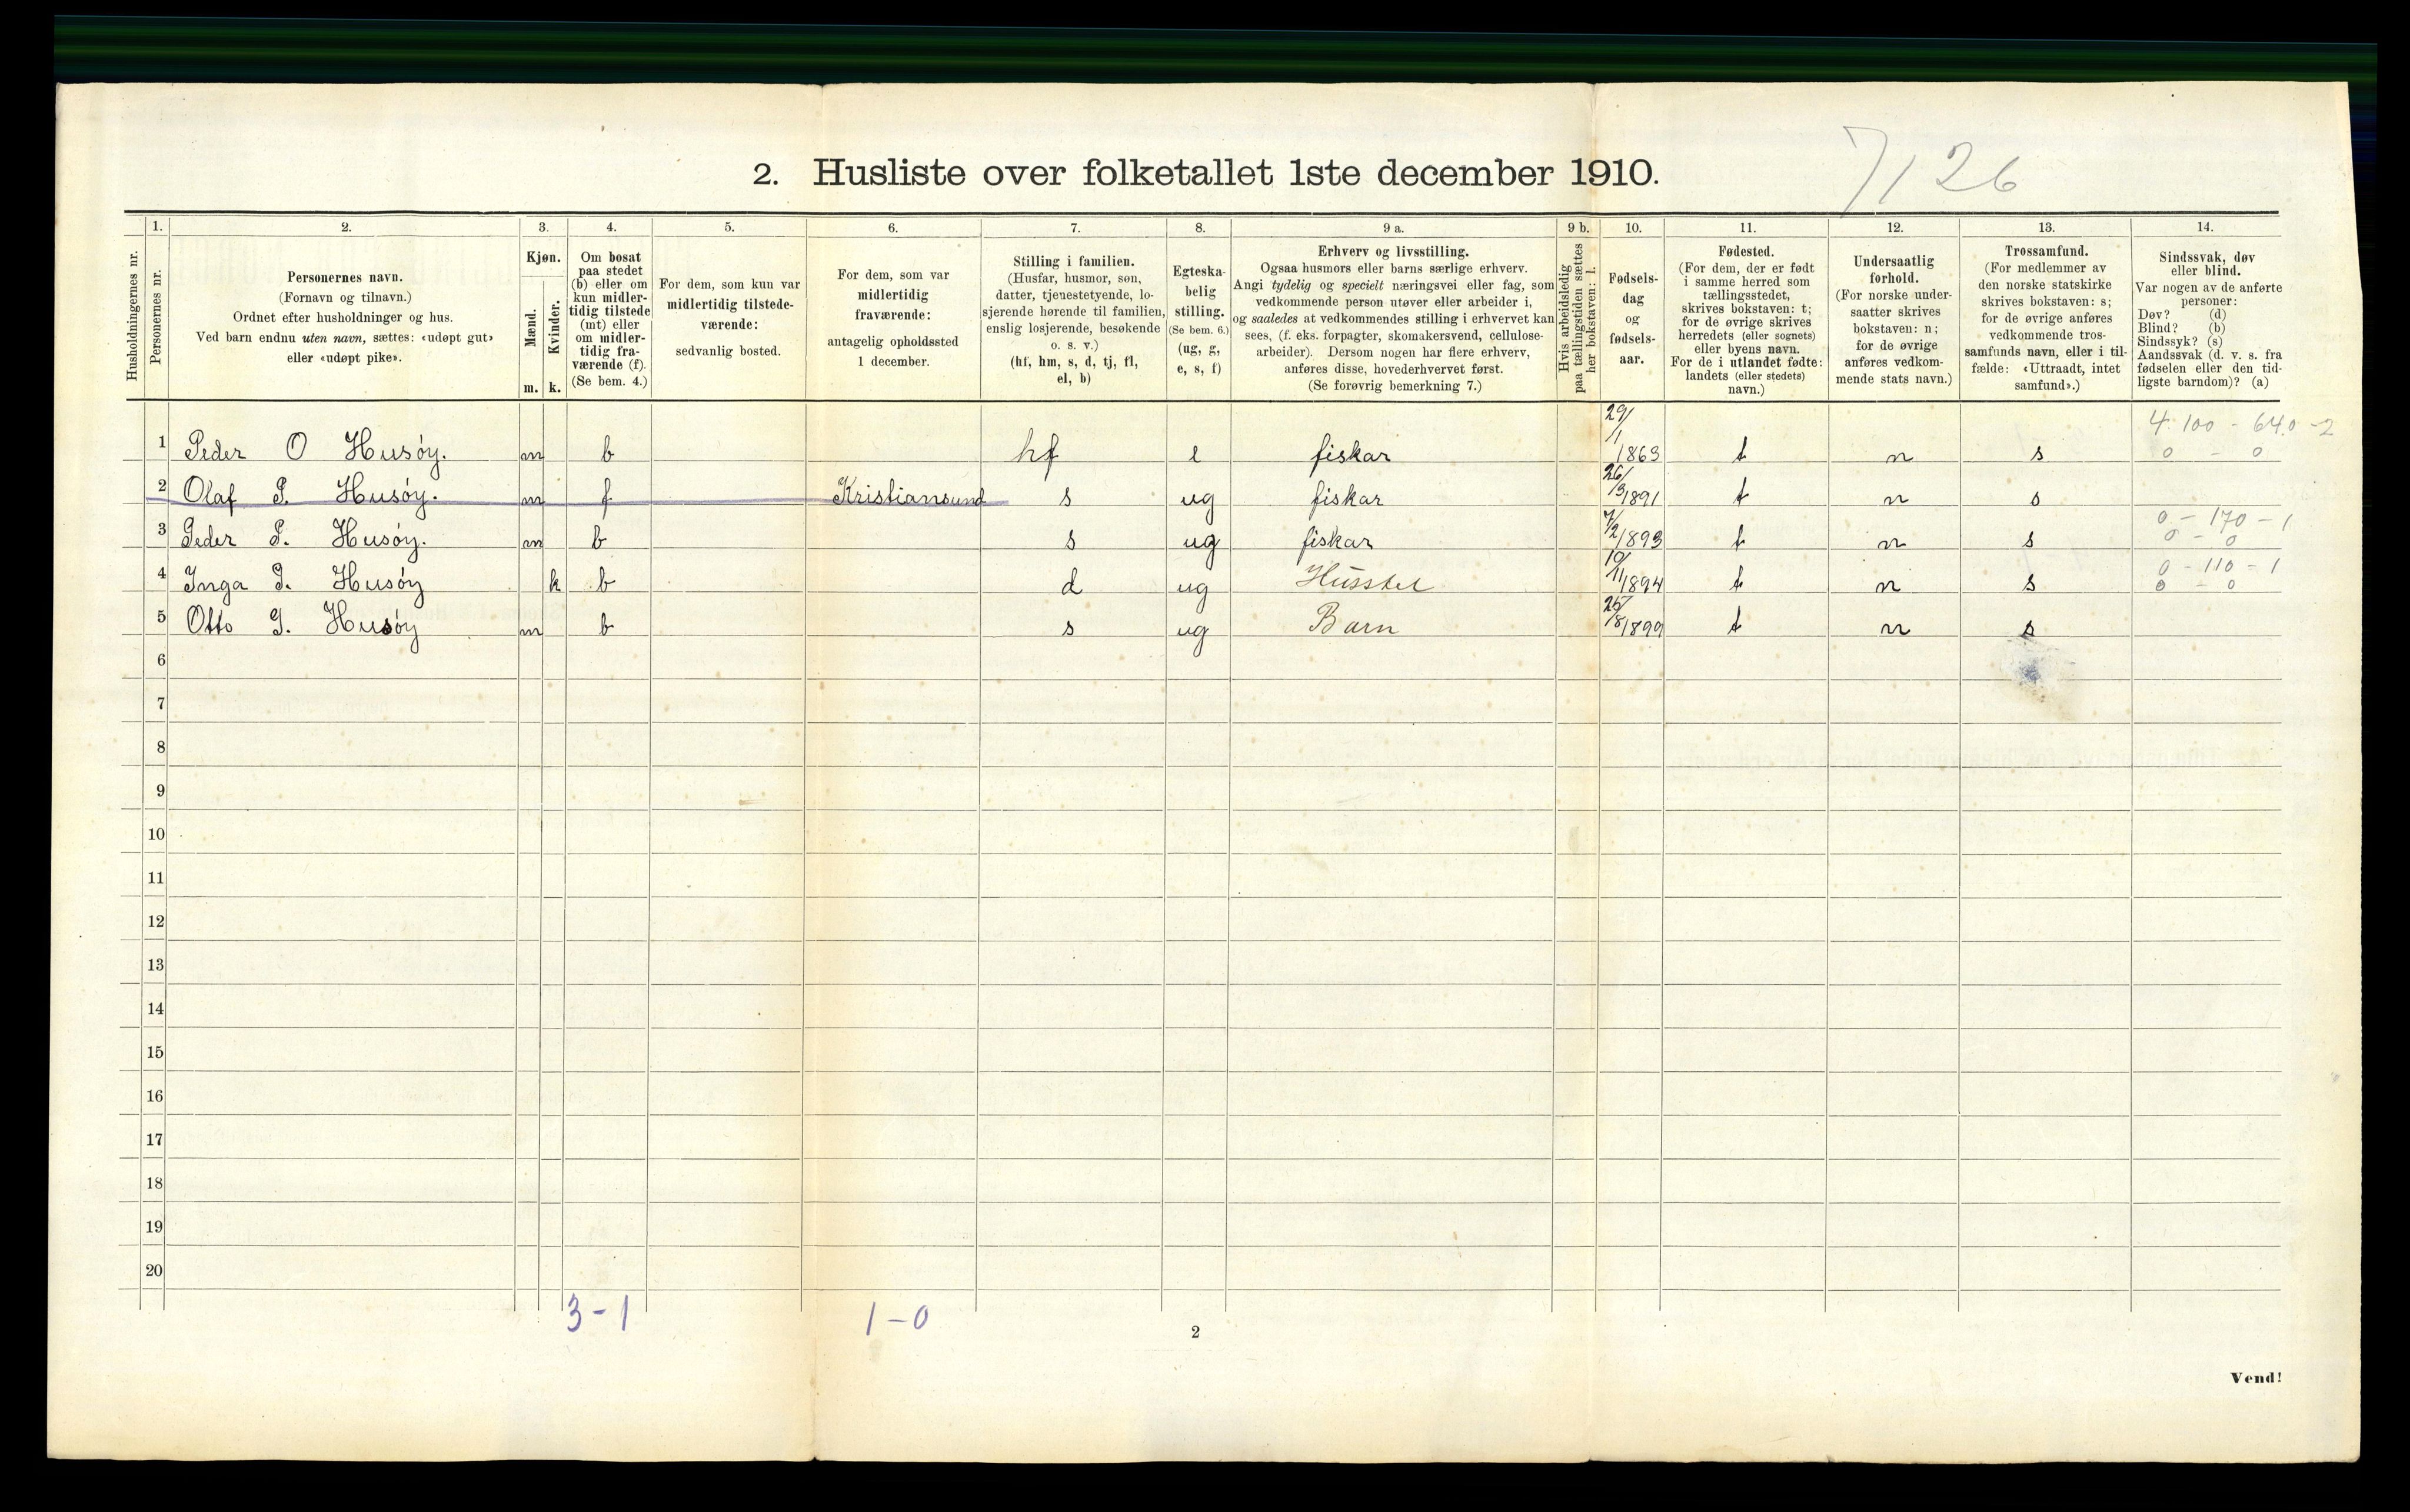 2. Husliste over folketallet 1ste december 1910.
7/126
Husholdningernes nr.
1.
Personernes nr.
2.
Personernes navn.
(Fornavn og tilnavn.)
Ordnet efter husholdninger og hus.
Ved barn endnu uten navn, sættes: «udøpt gut»
eller «udøpt pike».
3.
Kjøn.
Mænd.
m.
Kvinder.
k.
4.
Om bosat
paa stedet
(b) eller om
kun midler-
tidig tilstede
(mt) eller
om midler-
tidig fra-
værende (f).
(Se bem. 4.)
5.
For dem, som kun var
midlertidig tilstede-
værende:
sedvanlig bosted.
6.
For dem, som var
midlertidig
fraværende:
antagelig opholdssted
1 december.
7.
Stilling i familien.
(Husfar, husmor, søn,
datter, tjenestetyende, lo-
sjerende hørende til familien,
enslig losjerende, besøkende
o. s. v.)
(hf, hm, s, d, tj, fl,
el, b)
8.
Egteska-
belig
stilling.
(Se bem. 6.)
(ug, g,
e, s, f)
9 a.
Erhverv og livsstilling.
Ogsaa husmors eller barns særlige erhverv.
Angi tydelig og specielt næringsvei eller fag, som
vedkommende person utøver eller arbeider i,
og saaledes at vedkommendes stilling i erhvervet kan
sees, (f. eks. forpagter, skomakersvend, cellulose-
arbeider). Dersom nogen har flere erhverv,
anføres disse, hovederhvervet først.
(Se forøvrig bemerkning 7.)
9 b.
Hvis arbeidsledig
paa tællingstiden sættes
her bokstaven: l.
10.
Fødsels-
dag
og
fødsels-
aar.
11.
Fødested.
(For dem, der er født
i samme herred som
tællingsstedet,
skrives bokstaven: t;
for de øvrige skrives
herredets (eller sognets)
eller byens navn.
For de i utlandet fødte:
landets (eller stedets)
navn.)
12.
Undersaatlig
forhold.
(For norske under-
saatter skrives
bokstaven: n;
for de øvrige
anføres vedkom-
mende stats navn.)
13.
Trossamfund.
(For medlemmer av
den norske statskirke
skrives bokstaven: s;
for de øvrige anføres
vedkommende tros-
samfunds navn, eller i til-
fælde: «Uttraadt, intet
samfund».)
14.
Sindssvak, døv
eller blind.
Var nogen av de anførte
personer:
Døv? (d)
Blind? (b)
Sindssyk? (s)
Aandssvak (d. v. s. fra
fødselen eller den tid-
ligste barndom)? (a)
1 Peder O Husøy. m b hf e fiskar 29/1 1863 t n s 4 100 - 640 - 2
0 - 0
2 Olaf P. Husøy. m f Kristiansund s ug fiskar 26/3 1891 t n s
3 Peder P. Husøy. m b s ug fiskar 7/2 1893 t n s 0 - 170 - 1
0 - 0
4 Inga P. Husøy k b d ug Husstel 10/11 1894 t n s 0 - 110 - 1
0 - 0
5 Otto P. Husøy m b s ug Barn 25/8 1899 t n s
6
7
8
9
10
11
12
13
14
15
16
17
18
19
20
3 - 1
1 - 0
2
Vend!